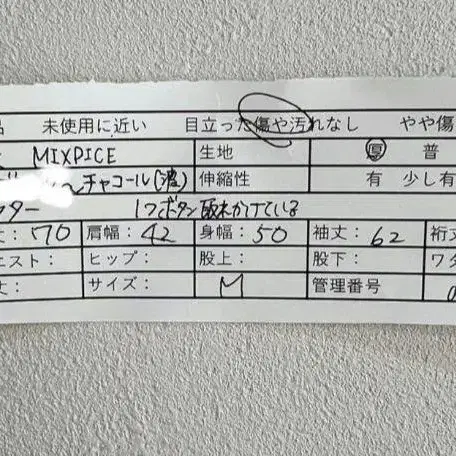 未使用に近い 目立った傷や汚れなし やや傷
MIXPICE 生地 厚 普
チャコール(濃) 伸縮性 有 少し有
ター 1つボタン取れかけている
丈: 70 肩幅: 42 身幅: 50 袖丈: 62 裄丈
エスト: ヒップ: 股上: 股下: ワタ
丈: サイズ: M 管理番号